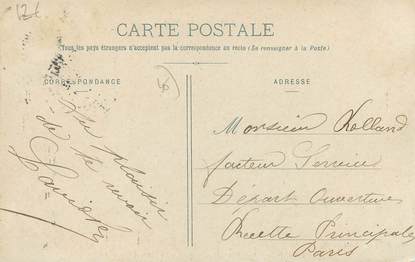 12€
CARTE POSTALE
Tous les pays étrangers n'acceptent pas la correspondance au recto (Se renseigner à la Poste)
CORRESPONDANCE
ADRESSE
Au plaisir
de te revoir
Monsieur Rolland
facteur Service
Départ Ouvertures
Recette Principale
Paris